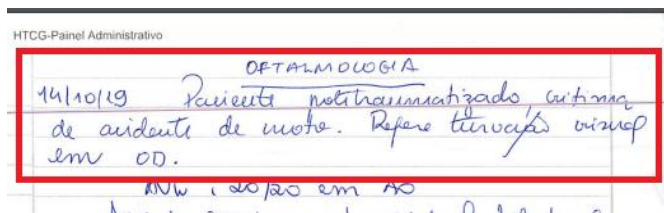 HTCG-Painel Administrativo
OFTALMOLOGIA
14/10/19 Paciente politraumatizado, vítima
de acidente de moto. Refere turvação visual
em OD.
20/20 em AO